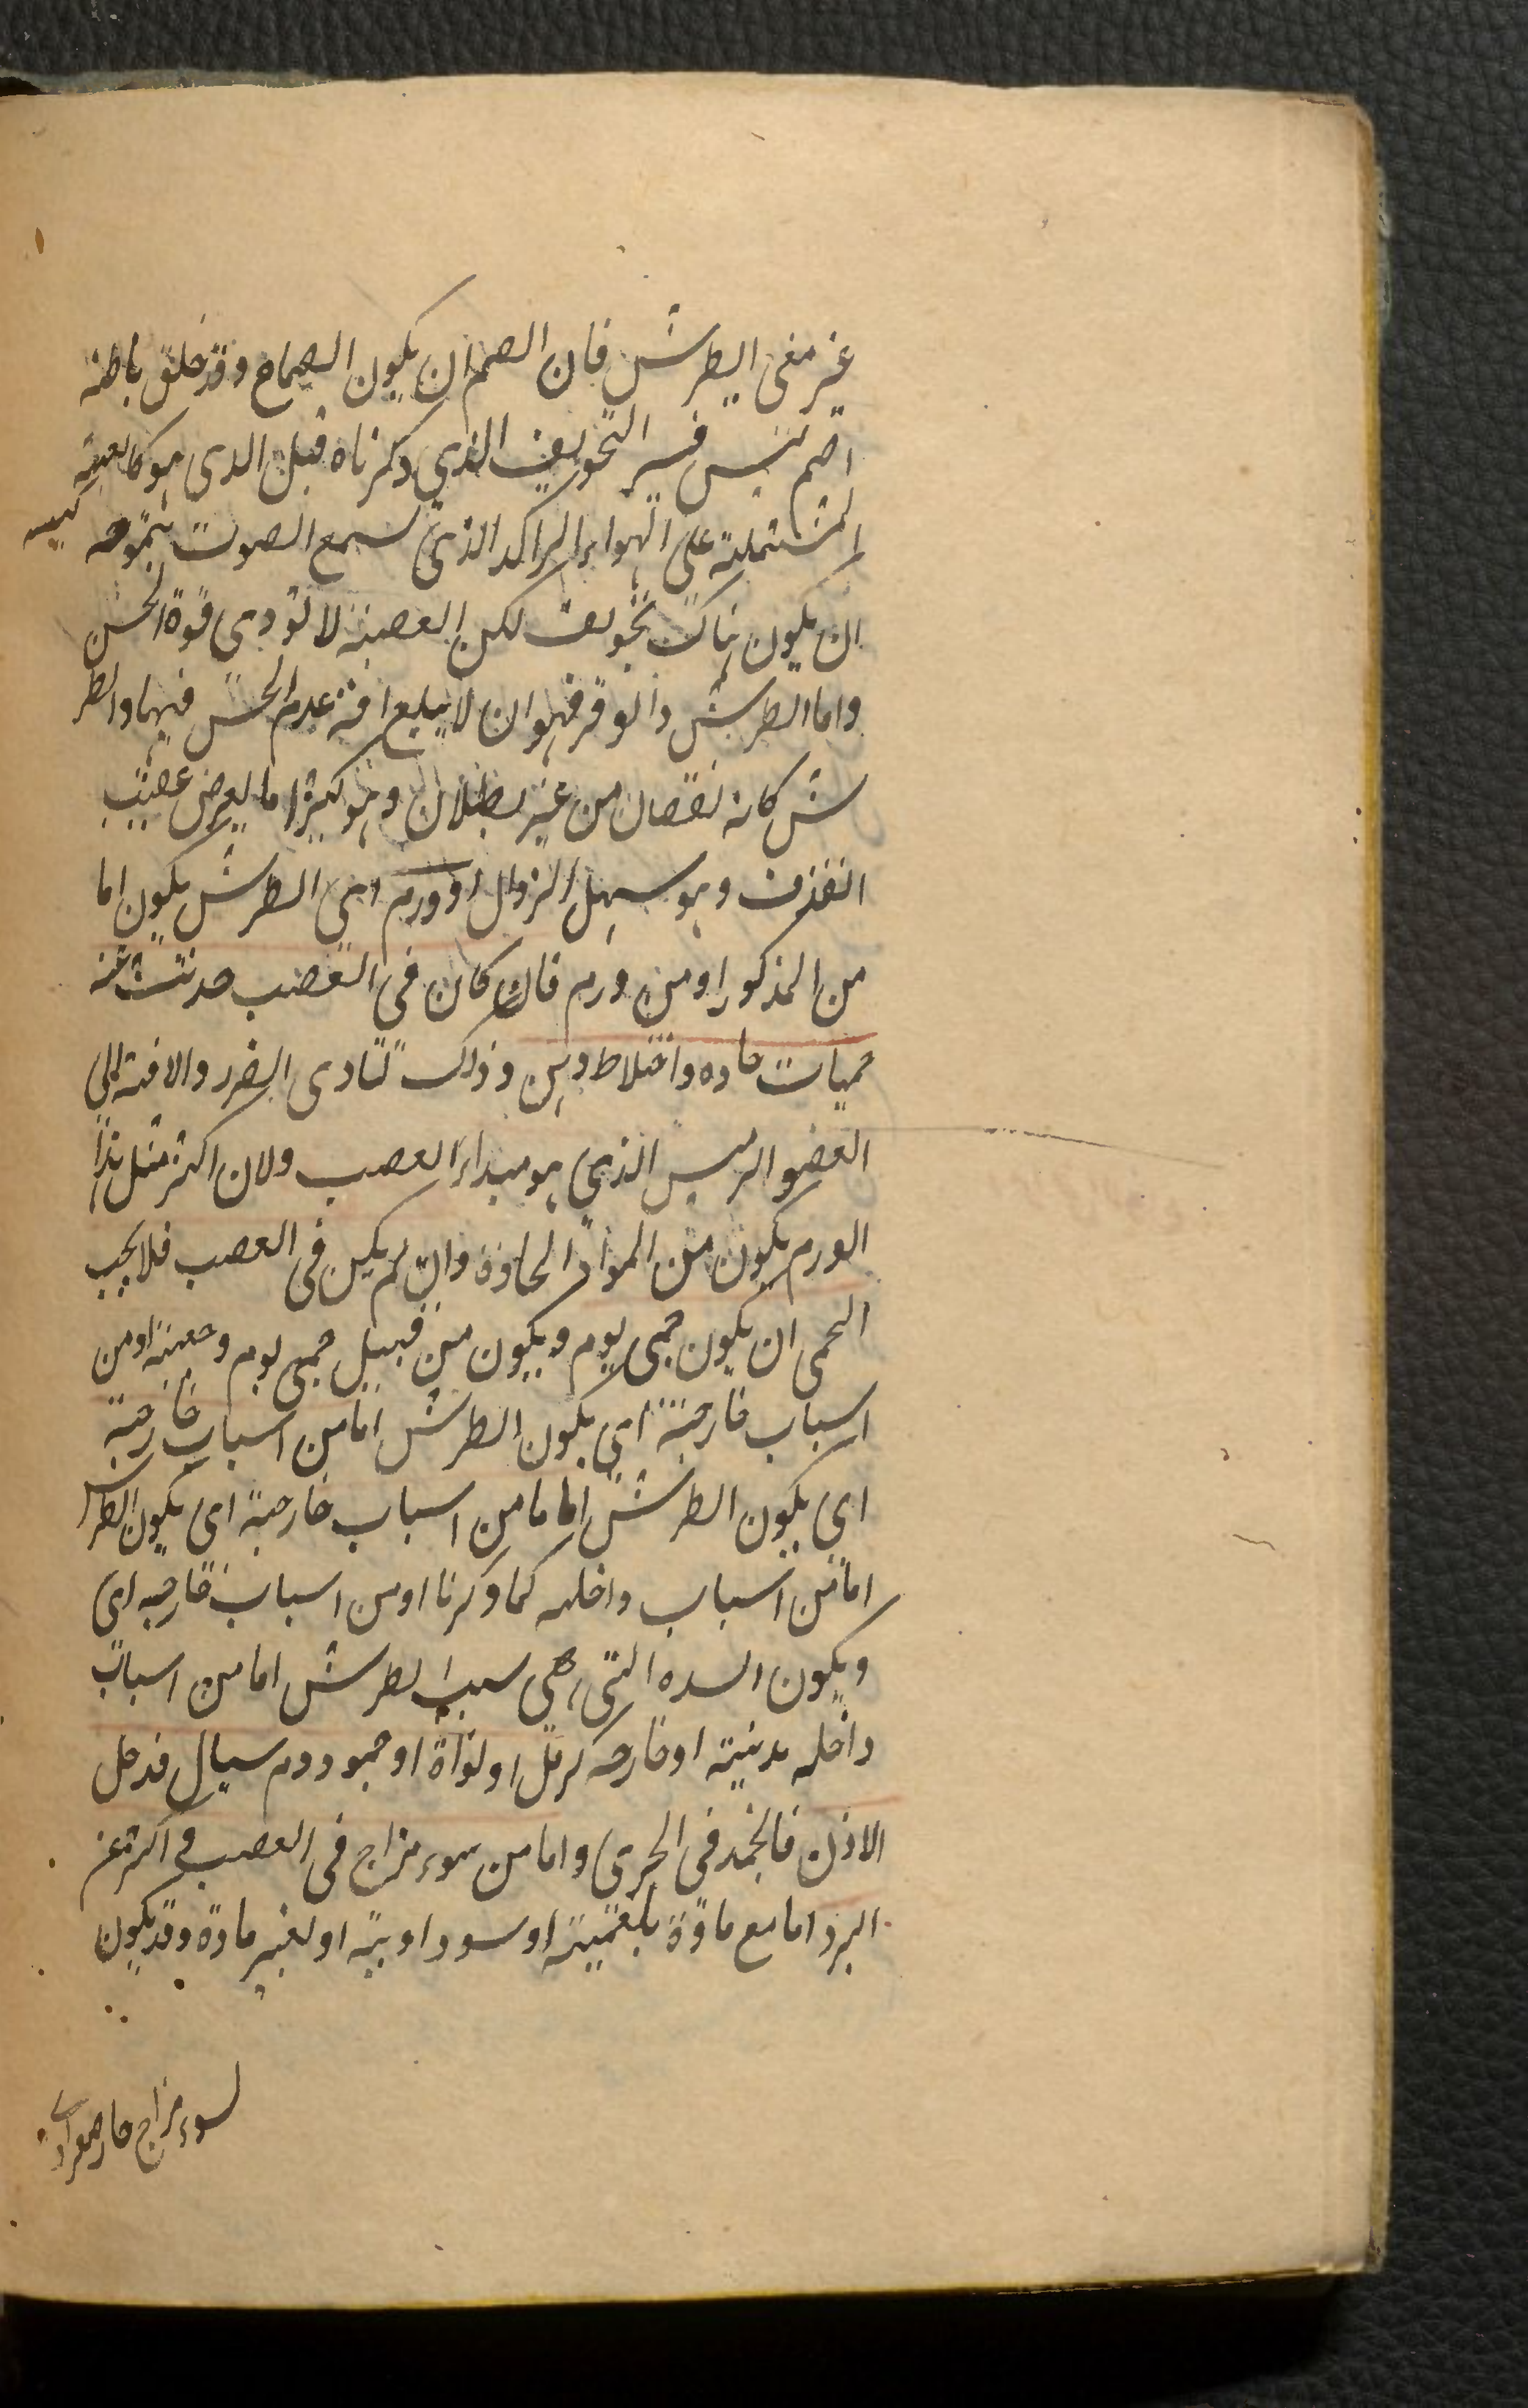 غير معنى الطرش فان الصمم ان يكون الصماخ وقد خلق باطنه
اصم ليس فيه التجويف الذي ذكرناه قبل الذى هو كالعنبة
المشتملة على الهواء الراكد الذي يسمع الصوت بتموجه
ان يكون هناك تجويف لكن العصبة لا تؤدى قوة الحس
واما الطرش والوقر فهو ان لا يبلغ افة عدم الحس فيهما والطر
ش كانه نقصان من غير بطلان وهو كثيرا ما يعرض عقيب
القذف وهو سهل الزوال او ورم اى الطرش يكون اما
من المذكور او من ورم فان كان فى العصب حدثت عنه
حميات حاده واختلاط ذهن وذلك لتادى الضرر والافة الى
العضو الرئيس الذي هو مبداء العصب ولان اكثر مثل هذا
الورم يكون من المواد الحادة وان لم يكن فى العصب فلا يجب
الحمى ان يكون حمى يوم ويكون من قبيل حمى يوم وحمية او من
اسباب خارجية اى يكون الطرش اما من اسباب خارجية
اى يكون الطرش اما ما من اسباب خارجية اى يكون الطرش
اما من اسباب داخله كما ذكرنا او من اسباب خارجيه اى
ويكون السده التى هى سببا لطرش اما من اسباب
داخله بدنية او خارجه كرمل او نواة او جمود دم سيال فدخل
الاذن فانجمد فى المجرى واما من سوء مزاج فى العصب و اكثره عن
البرد اما مع مادة بلغمية او سوداوية او بغير مادة وقد يكون
لسوء مزاج حار